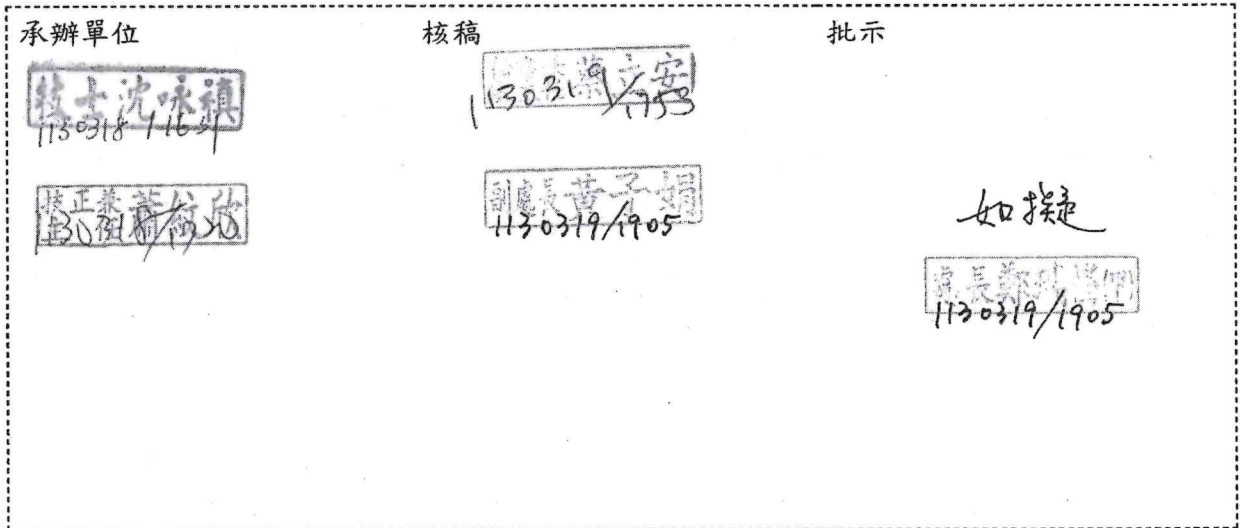 承辦單位
技士沈咏禎
1130318
核稿
立安
1130319/1753
副處長黃子娟
1130319/1905
批示
如擬
處長鄭
1130319/1905